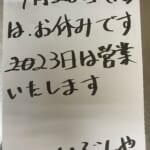 月
は、お休みです
2023日は営業
いたします
ぶしや